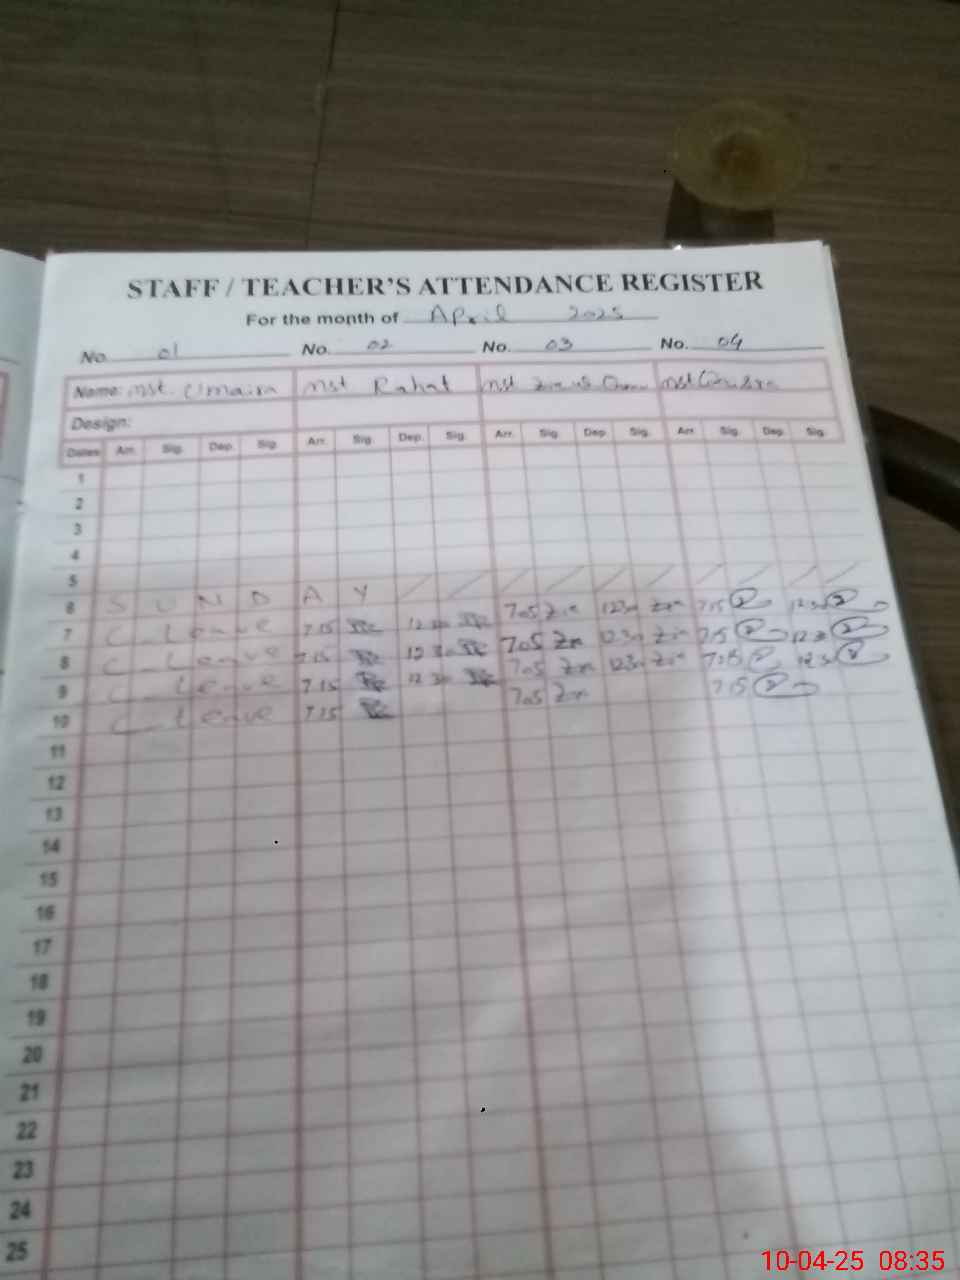 STAFF / TEACHER'S ATTENDANCE REGISTER
For the month of April 2025
No. 01 No. 02 No. 03 No. 04
Name: Mst. Umaira Mst Rahat Mst Mst
Design:
Dates Arr. Sig. Dep. Sig. Arr. Sig. Dep. Sig. Arr. Sig. Dep. Sig. Arr. Sig. Dep. Sig.
1
2
3
4
5
6 S U N D A Y
7 C Leave 7.15 12.30 7.05 Zn 1230 Zn 7.15 12.30
8 C Leave 7.15 12.30 7.05 Zn 1230 Zn 7.15 12.30
9 C Leave 7.15 12.30 7.05 Zn 1230 Zn 7.15 12.30
10 C Leave 7.15 7.05 Zn 7.15
11
12
13
14
15
16
17
18
19
20
21
22
23
24
25
10-04-25 08:35